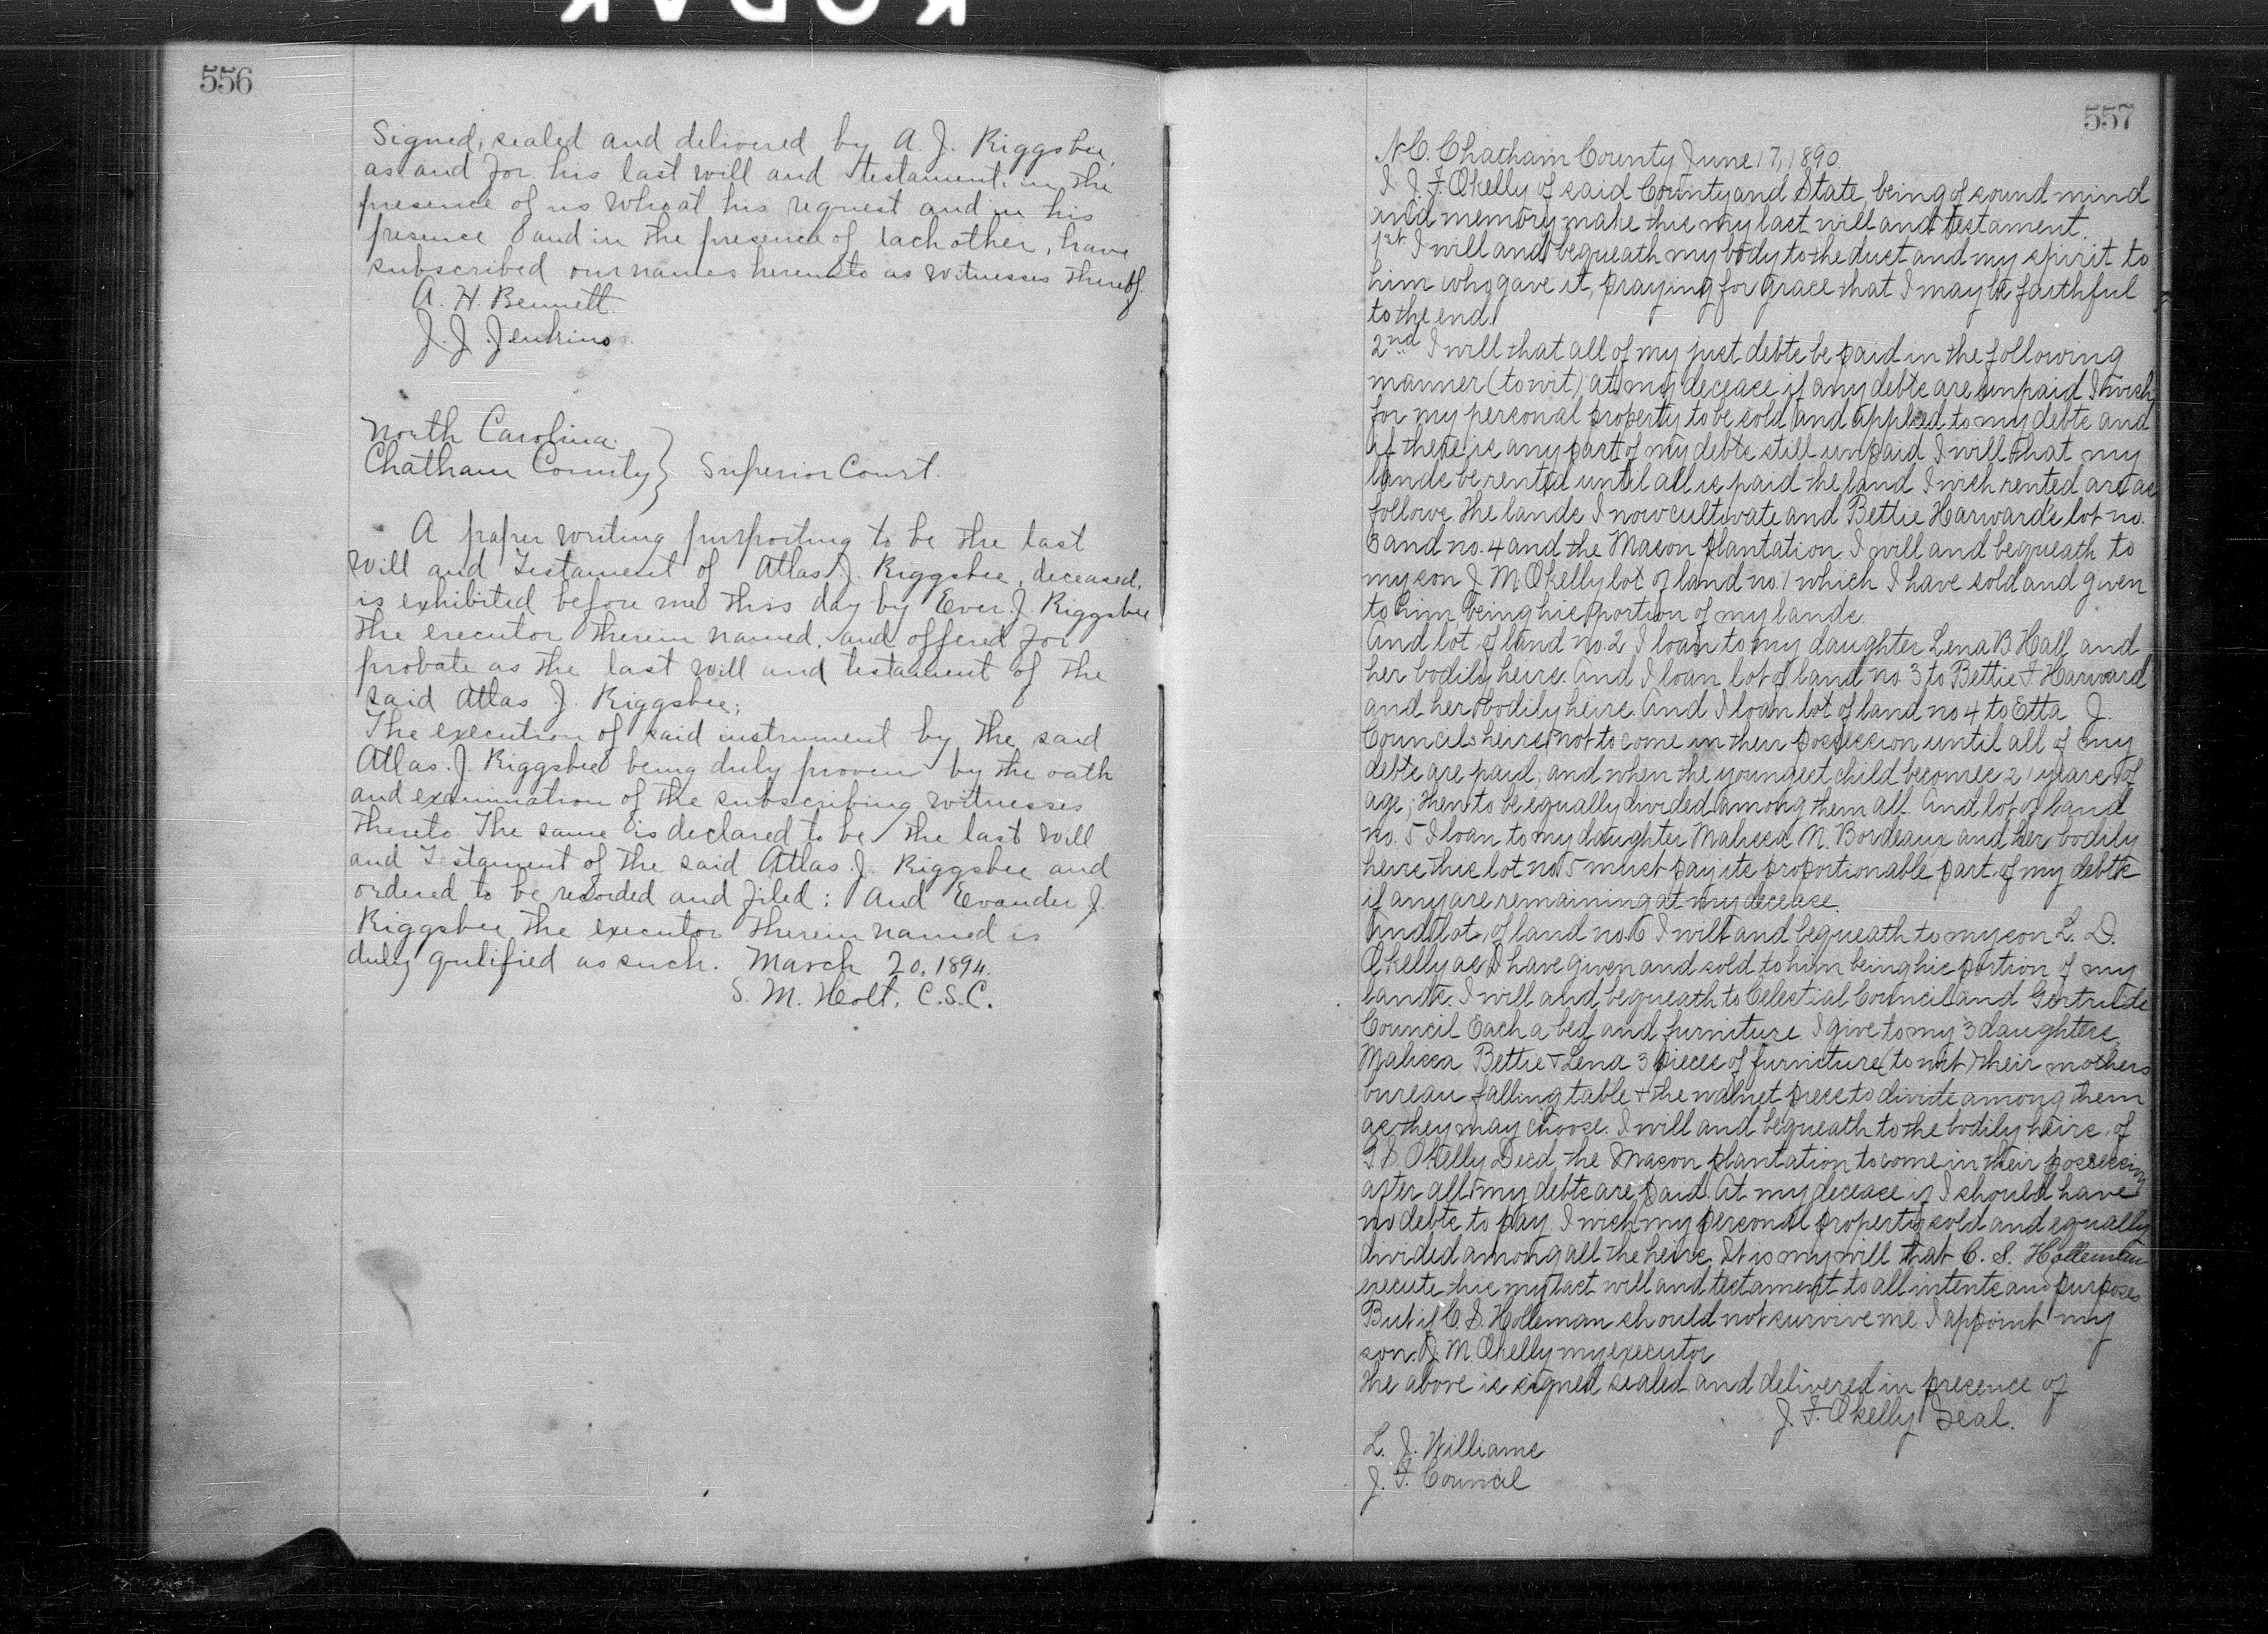 KODAK
556
Signed, sealed and delivered by A. J. Riggsbee,
as and for his last will and testament, in the
presence of us who at his request and in his
presence and in the presence of each other, have
subscribed our names hereunto as witnesses thereof.
A. H. Bennett.
J. J. Jenkins.
North Carolina.
Chatham County } Superior Court.
A paper writing purporting to be the last
Will and Testament of Atlas J. Riggsbee, deceased,
is exhibited before me this day by Ever. J. Riggsbee
the executor therein named, and offered for
probate as the last will and testament of the
said Atlas J. Riggsbee;
The execution of said instrument by the said
Atlas. J. Riggsbee being duly proven by the oath
and examination of the subscribing witnesses
thereto. The same is declared to be the last will
and Testament of the said Atlas. J. Riggsbee and
ordered to be recorded and filed; And Evander J.
Riggsbee the executor therein named is
duly qulified as such. March 20, 1894.
S. M. Holt, C.S.C.
557
N.C. Chatham County June 17, 1890
I J. F. Okelly of said County and State, being of sound mind
and memory make this my last will and testament.
1st I will and bequeath my body to the dust and my spirit to
him who gave it, praying for grace that I may be faithful
to the end.
2nd I will that all of my just debts be paid in the following
manner (to wit) at my decease if any debts are unpaid I wish
for my personal property to be sold and applied to my debts and
if there is any part of my debts still unpaid I will that my
lands be rented until all is paid the land I wish rented are as
follows The lands I now cultivate and Bettie Harward's lot no.
3 and no. 4 and the Mason plantation I will and bequeath to
my son J. M. Okelly lot of land no. 1 which I have sold and given
to him being his portion of my lands.
And lot of land no. 2 I loan to my daughter Lena B Hall and
her bodily heirs. And I loan lot of land no 3 to Bettie F Harward
and her bodily heirs. And I loan lot of land no 4 to Etta J.
Councils heirs not to come in their possession until all of my
debts are paid, and when the youngest child becomes 21 years of
age; then to be equally divided among them all. And lot of land
no. 5 I loan to my daughter Malissa M. Bordeaux and her bodily
heirs this lot no 5 must pay its proportionable part of my debts
if any are remaining at my decease.
And lot of land no. 6 I will and bequeath to my son L. D.
Okelly as I have given and sold to him being his portion of my
lands. I will and bequeath to Celestial Council and Gertrude
Council Each a bed and furniture. I give to my 3 daughters,
Malissa, Bettie & Lena 3 pieces of furniture (to wit) their mothers
bureau falling table & the walnet press to divide among them
as they may choose. I will and bequeath to the bodily heirs of
Okelly Decd, the Mason plantation to come in their possession
after all my debts are paid. At my decease if I should have
no debts to pay. I wish my personal property sold and equally
divided among all the heirs. It is my will that C. S. Holleman
execute this my last will and testament to all intents and purposes
But if C. S. Holleman should not survive me I appoint my
son J. M. Okelly my executor
the above is signed sealed and delivered in presence of
J. F. Okelly Seal.
L. J. Williams
J. F. Council